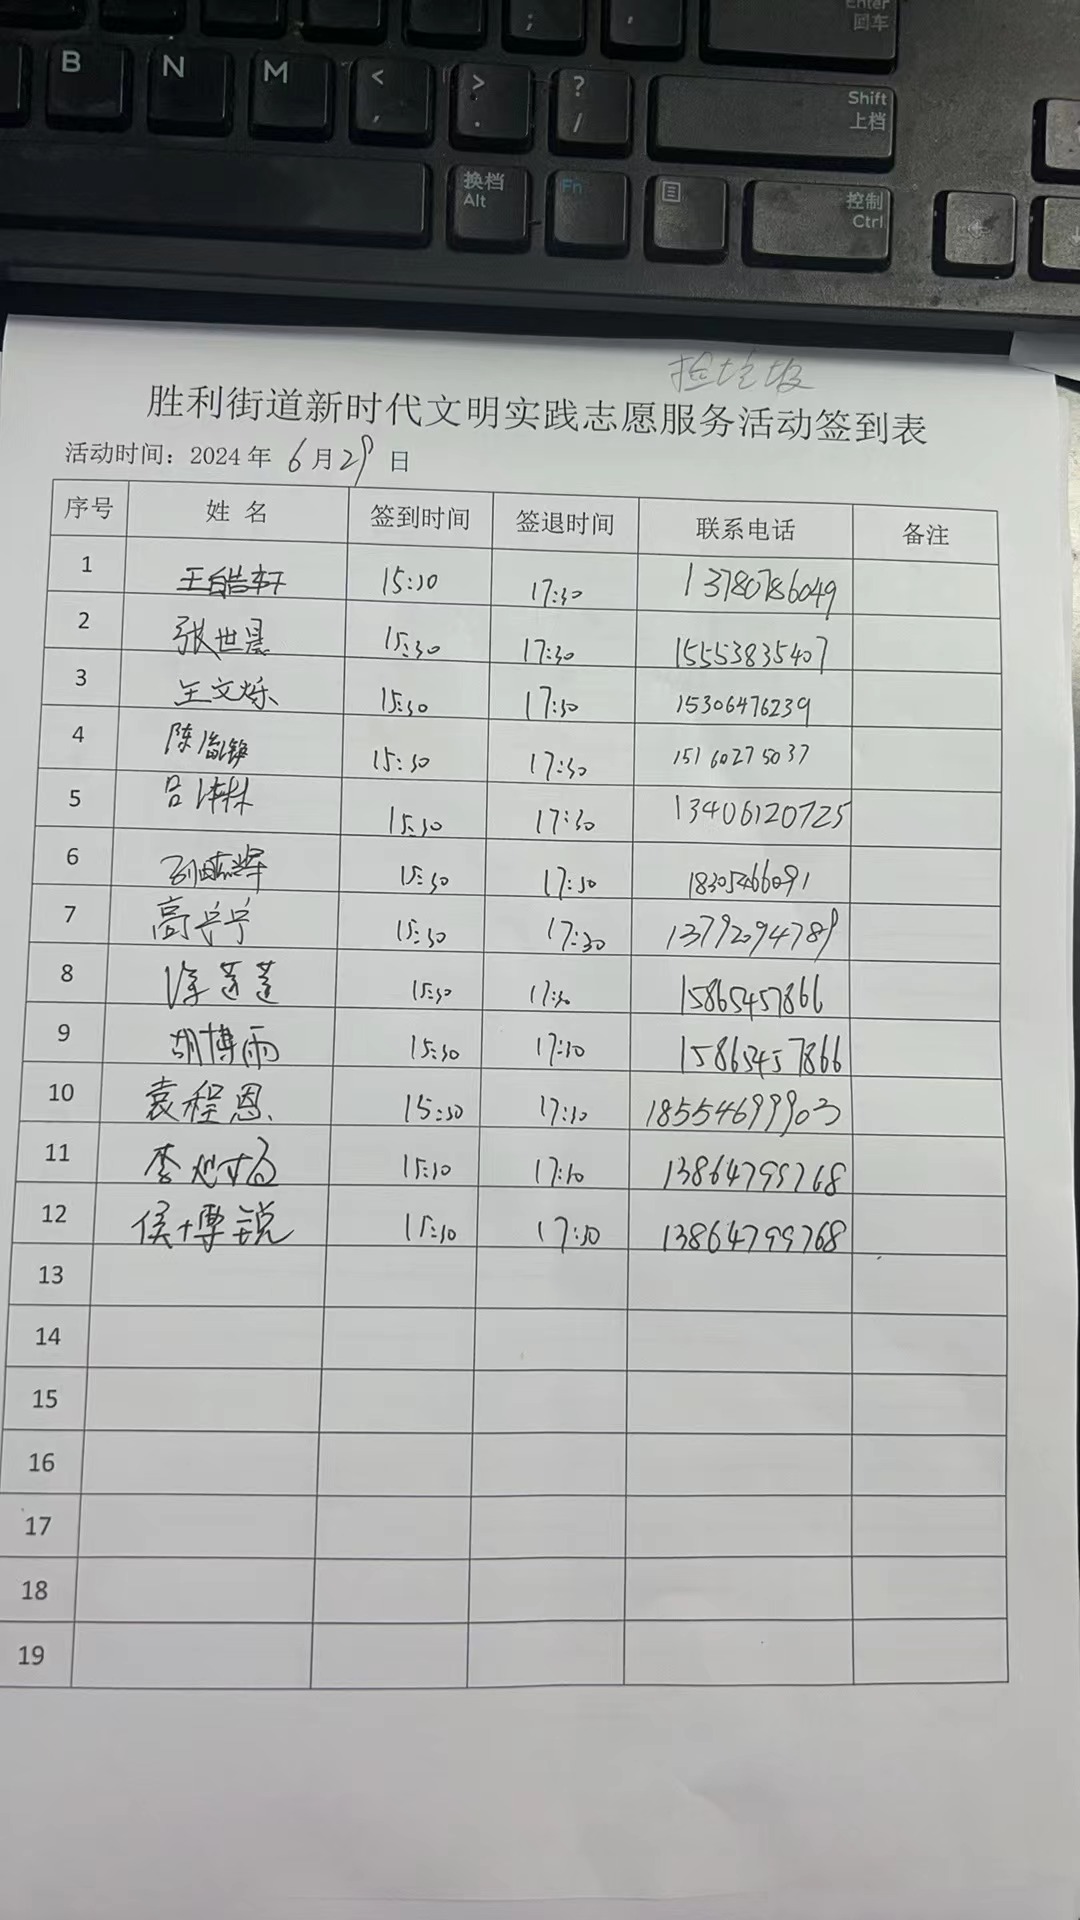 ; ,
Enter
回车
B N M < , > . ? /
Shift
上档
换档
Alt
Fn
控制
Ctrl
捡垃圾
胜利街道新时代文明实践志愿服务活动签到表
活动时间：2024年 6月29日
序号 姓 名 签到时间 签退时间 联系电话 备注
1 王皓轩 15:30 17:30 13780786049
2 张世晨 15:30 17:30 15553835407
3 王文烁 15:30 17:30 15306476239
4 陈 15:30 17:30 15160275037
5 吕 15:30 17:30 13406120725
6 15:30 17:30 18305466091
7 高宁宁 15:30 17:30 13792094789
8 徐莲莲 15:30 17:30 15865457866
9 胡博雨 15:30 17:30 15865457866
10 袁程恩 15:30 17:30 18554699903
11 李 15:30 17:30 13864799768
12 侯博锐 15:30 17:30 13864799768
13
14
15
16
17
18
19